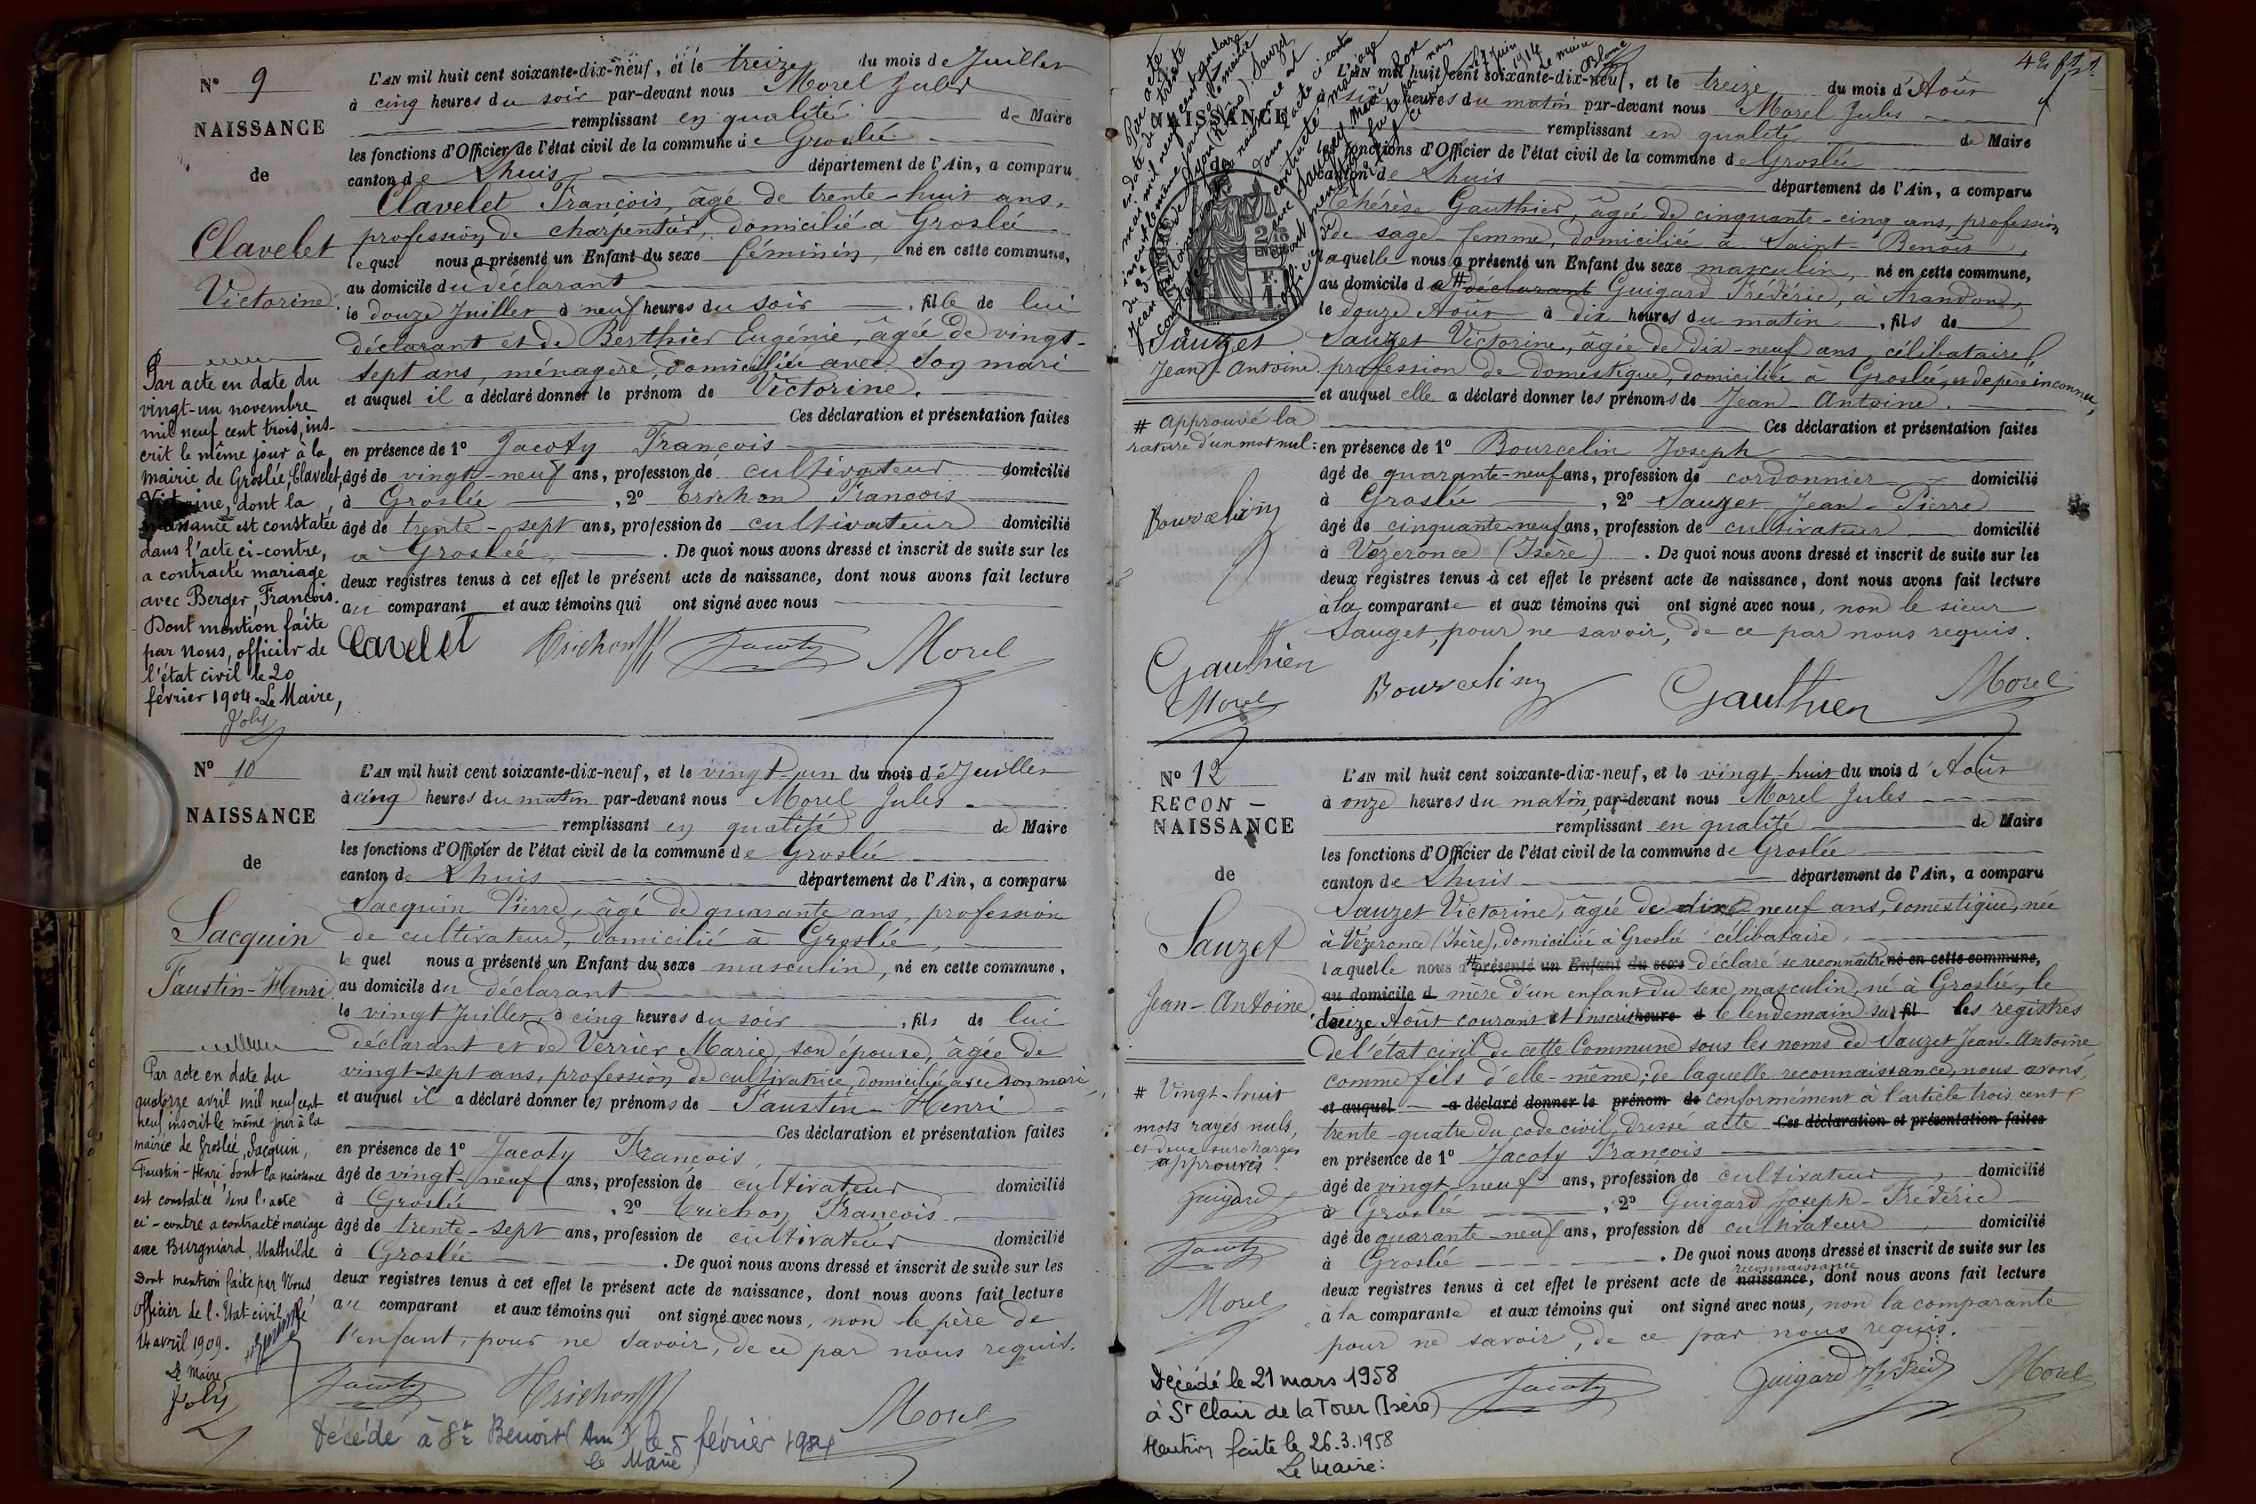 N° 9
NAISSANCE
de
Clavelet
Victorine
L'AN mil huit cent soixante-dix-neuf, et le treize du mois de Juillet
à cinq heures du soir par-devant nous Morel Jules
remplissant en qualité de Maire
les fonctions d'Officier de l'état civil de la commune de Groslée
canton de Lhuis département de l'Ain, a comparu
Clavelet François, âgé de trente-huit ans,
profession de charpentier, domicilié à Groslée
lequel nous a présenté un Enfant du sexe féminin, né en cette commune,
au domicile du déclarant
le douze Juillet à neuf heures du soir, fille de lui
déclarant et de Berthier Eugénie, âgée de vingt-
sept ans, ménagère, domiciliée avec son mari
et auquel il a déclaré donner le prénom de Victorine.
Ces déclaration et présentation faites
en présence de 1° Jacoty François
âgé de vingt-neuf ans, profession de cultivateur domicilié
à Groslée, 2° Trichon François
âgé de trente-sept ans, profession de cultivateur domicilié
à Groslée. De quoi nous avons dressé et inscrit de suite sur les
deux registres tenus à cet effet le présent acte de naissance, dont nous avons fait lecture
au comparant et aux témoins qui ont signé avec nous
Clavelet Trichon Jacoty Morel
Par acte en date du
vingt-un novembre
mil neuf cent trois, ins-
crit le même jour à la
mairie de Groslée, Clavelet,
Victorine, dont la
naissance est constatée
dans l'acte ci-contre,
a contracté mariage
avec Berger, François.
Dont mention faite
par nous, officier de
l'état civil le 20
février 1904. Le Maire,
Joly
N° 10
NAISSANCE
de
Sacquin
Faustin-Henri
L'AN mil huit cent soixante-dix-neuf, et le vingt-un du mois de Juillet
à cinq heures du matin par-devant nous Morel Jules
remplissant en qualité de Maire
les fonctions d'Officier de l'état civil de la commune de Groslée
canton de Lhuis département de l'Ain, a comparu
Sacquin Pierre, âgé de quarante ans, profession
de cultivateur, domicilié à Groslée,
lequel nous a présenté un Enfant du sexe masculin, né en cette commune,
au domicile du déclarant
le vingt Juillet, à cinq heures du soir, fils de lui
déclarant et de Verrier Marie, son épouse, âgée de
vingt-sept ans, profession de cultivatrice, domiciliée avec son mari,
et auquel il a déclaré donner les prénoms de Faustin-Henri
Ces déclaration et présentation faites
en présence de 1° Jacoty François,
âgé de vingt-neuf ans, profession de cultivateur domicilié
à Groslée, 2° Trichon François
âgé de trente-sept ans, profession de cultivateur domicilié
à Groslée. De quoi nous avons dressé et inscrit de suite sur les
deux registres tenus à cet effet le présent acte de naissance, dont nous avons fait lecture
au comparant et aux témoins qui ont signé avec nous, non le père de
l'enfant, pour ne savoir, de ce par nous requis.
Jacoty Trichon Morel
Par acte en date du
quatorze avril mil neuf cent
neuf inscrit le même jour à la
mairie de Groslée, Sacquin,
Faustin-Henri dont la naissance
est constatée dans l'acte
ci-contre a contracté mariage
avec Burgniard, Mathilde
Dont mention faite par Nous,
officier de l'Etat-civil le
14 avril 1909.
Le Maire,
Joly
Décédé à St Benoit (Ain) le 5 février
le Maire
NAISSANCE
de
Sauzet
Jean-Antoine
L'AN mil huit cent soixante-dix-neuf, et le treize du mois d'Août
à six heures du matin par-devant nous Morel Jules
remplissant en qualité de Maire
les fonctions d'Officier de l'état civil de la commune de Groslée
canton de Lhuis département de l'Ain, a comparu
Thérèse Gauthier, âgée de cinquante-cinq ans, profession
de sage-femme, domiciliée à Saint-Benoit,
laquelle nous a présenté un Enfant du sexe masculin, né en cette commune,
au domicile de # déclarant Guigard Frédéric, à Arandon,
le douze Août à dix heures du matin, fils de
Sauzet Victorine, âgée de dix-neuf ans, célibataire,
profession de domestique, domiciliée à Groslée, et de père inconnu,
et auquel elle a déclaré donner les prénoms de Jean-Antoine.
Ces déclaration et présentation faites
en présence de 1° Bourcelin Joseph
âgé de quarante-neuf ans, profession de cordonnier domicilié
à Groslée, 2° Sauzet Jean-Pierre
âgé de cinquante-neuf ans, profession de cultivateur domicilié
à Vézeronce (Isère). De quoi nous avons dressé et inscrit de suite sur les
deux registres tenus à cet effet le présent acte de naissance, dont nous avons fait lecture
à la comparante et aux témoins qui ont signé avec nous, non le sieur
Sauzet, pour ne savoir, de ce par nous requis.
# Approuvé la
rature d'un mot nul:
Bourcelin
Gauthier
Morel
Bourcelin Gauthier Morel
N° 12
RECON-
NAISSANCE
de
Sauzet
Jean-Antoine
L'AN mil huit cent soixante-dix-neuf, et le vingt-huit du mois d'Août
à onze heures du matin, par-devant nous Morel Jules
remplissant en qualité de Maire
les fonctions d'Officier de l'état civil de la commune de Groslée
canton de Lhuis département de l'Ain, a comparu
Sauzet Victorine, âgée de dix neuf ans, domestique, née
à Vézeronce (Isère), domiciliée à Groslée célibataire,
laquelle nous a # présenté un Enfant du sexe déclaré se reconnaître né en cette commune,
au domicile d mère d'un enfant du sexe masculin, né à Groslée, le
douze Août courant et inscrit heure à le lendemain sur fil les registres
de l'état civil de cette Commune sous les noms de Sauzet Jean-Antoine
comme fils d'elle-même; de laquelle reconnaissance, nous avons,
et auquel a déclaré donner le prénom de conformément à l'article trois cent
trente-quatre du code civil, dressé acte Ces déclaration et présentation faites
en présence de 1° Jacoty François
âgé de vingt-neuf ans, profession de cultivateur domicilié
à Groslée, 2° Guigard Joseph-Frédéric
âgé de quarante-neuf ans, profession de cultivateur domicilié
à Groslée. De quoi nous avons dressé et inscrit de suite sur les
reconnaissance
deux registres tenus à cet effet le présent acte de naissance, dont nous avons fait lecture
à la comparante et aux témoins qui ont signé avec nous, non la comparante
pour ne savoir, de ce par nous requis.
# Vingt-huit
mots rayés nuls,
et deux surcharges
approuvés.
Guigard
Jacoty
Morel
Jacoty Guigard Morel
Décédé le 21 mars 1958
à St Clair de la Tour (Isère)
Mention faite le 26.3.1958
Le Maire: